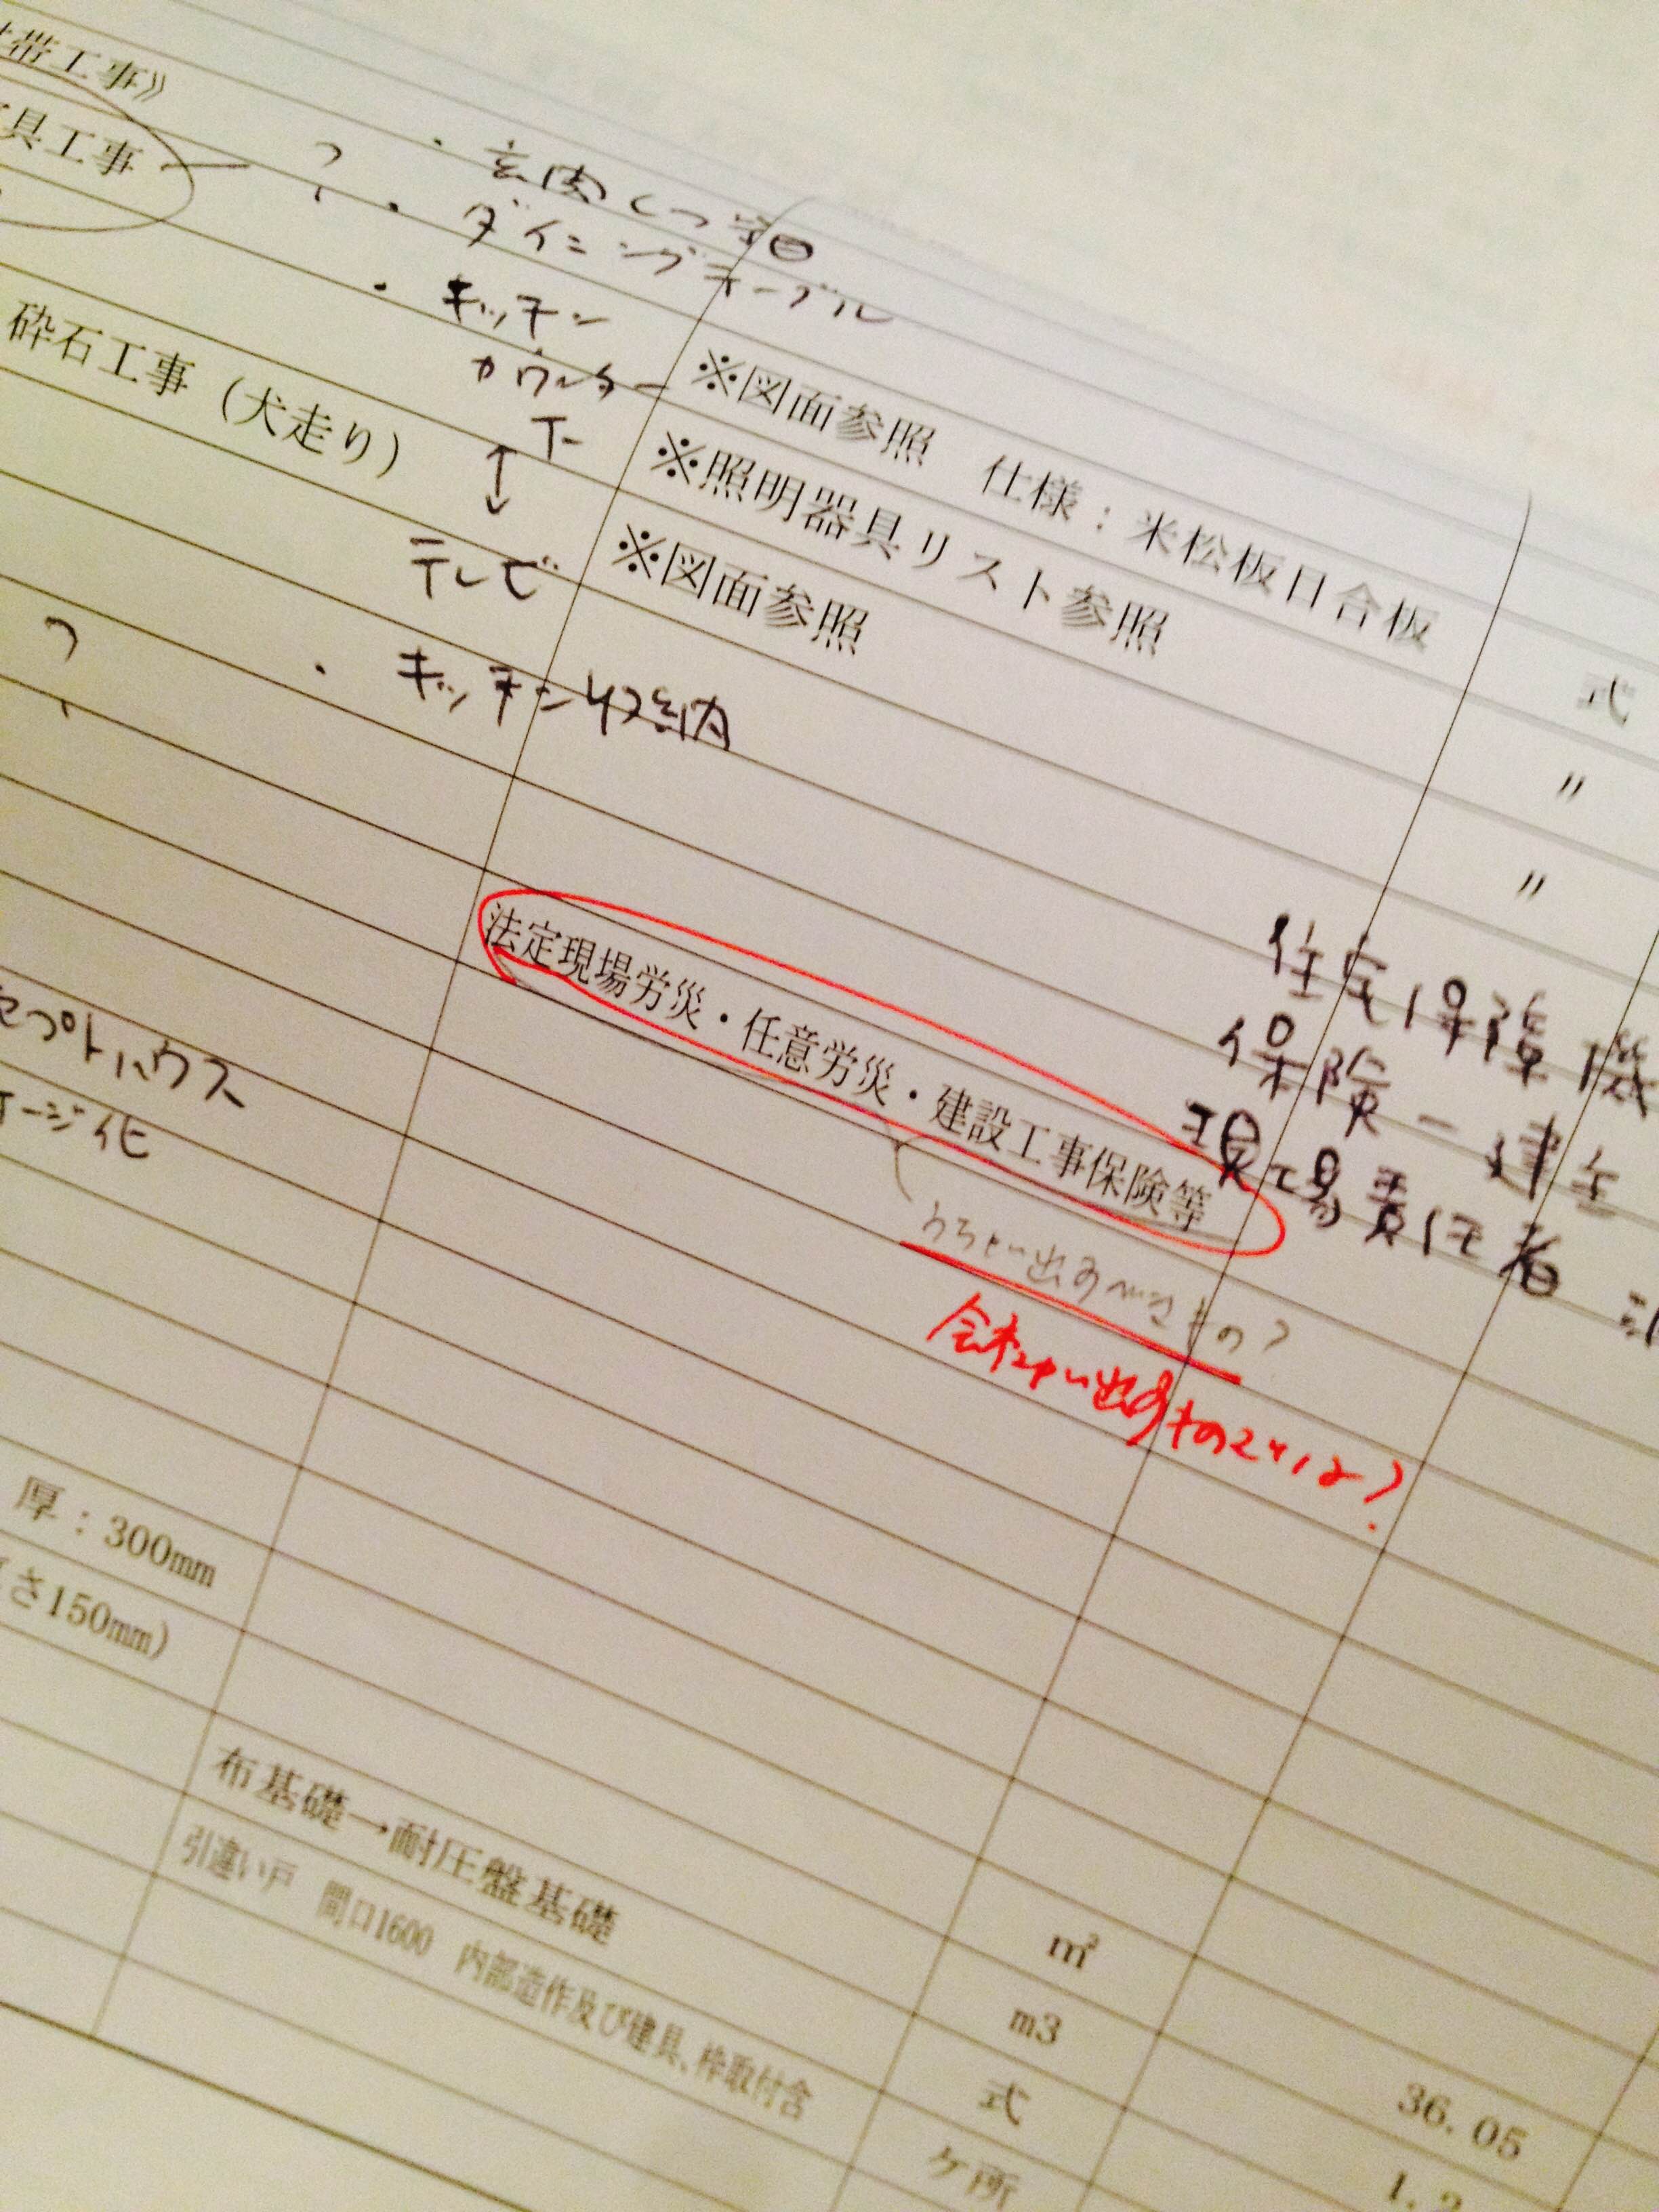 帯工事》
具工事
?
・玄関くつ箱
・ダイニングテーブル
・キッチン
カウンター
下
↕
テレビ
砕石工事（犬走り）
※図面参照　仕様：米松板目合板
式
※照明器具リスト参照
〃
※図面参照
〃
?
・キッチン収納
法定現場労災・任意労災・建設工事保険等
住宅保障機
保険
現場責任者
うちが出すべきもの？
会社が出すものでは？
セプトハウス
ージ化
厚：300mm
さ150mm）
布基礎→耐圧盤基礎
引違い戸　間口1600　内部造作及び建具、枠取付含
㎡
m3
式
ケ所
36.05